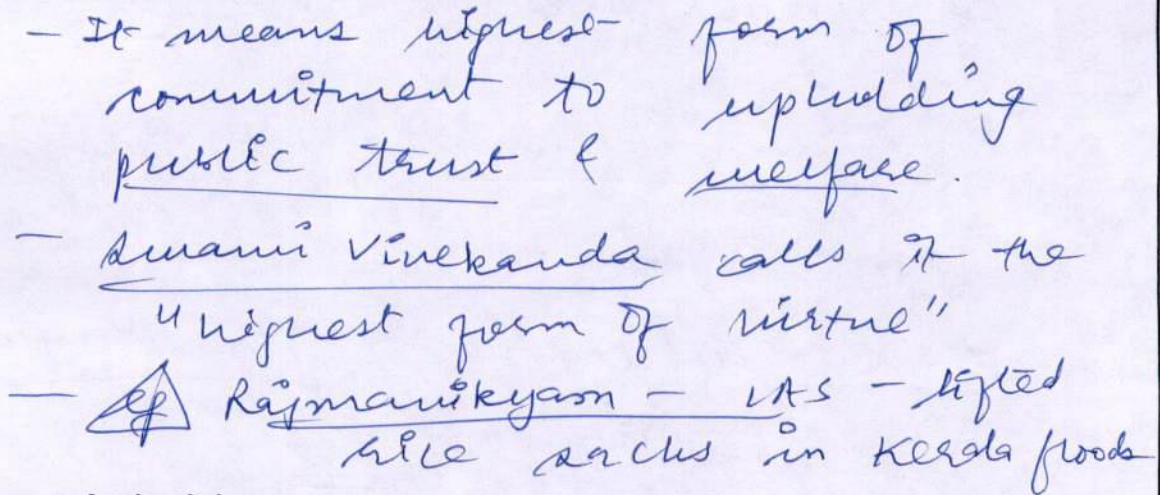 - It means highest form of
commitment to upholding
public trust & welfare.
- Swami Vivekanda calls it the
"highest form of virtue"
- eg Rajmanikyam - IAS - lifted
rice sacks in Kerala floods